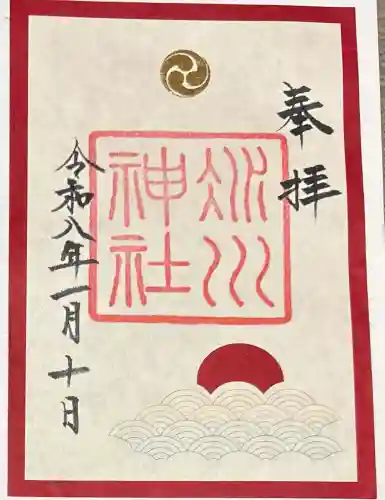 奉拝
氷川
神社
令和八年一月十日